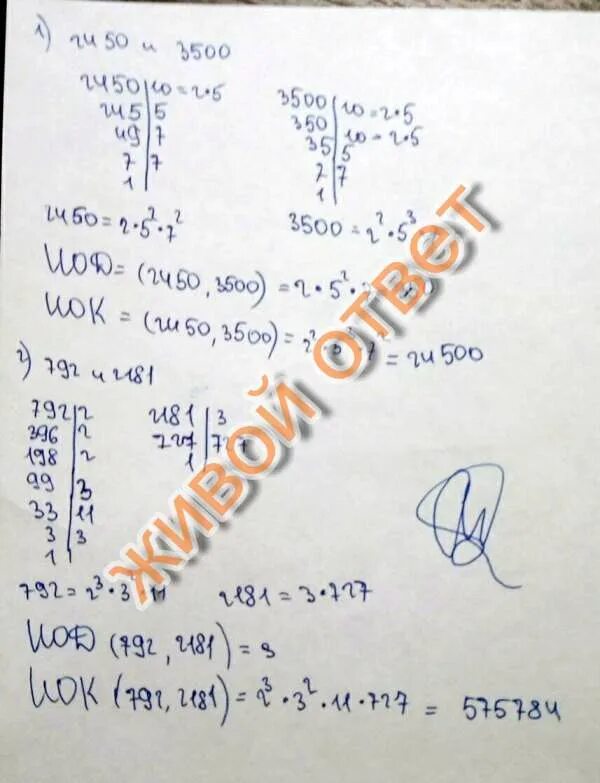 1) 2450 и 3500
2450 | 10 = 2·5
245 | 5
49 | 7
7 | 7
1
3500 | 10 = 2·5
350 | 10 = 2·5
35 | 5
7 | 7
1
2450 = 2·5²·7²
3500 = 2²·5³
НОД = (2450, 3500) = 2·5²·
НОК = (2450, 3500) = 2² · 7² = 24500
2) 792 и 2181
792 | 2
396 | 2
198 | 2
99 | 3
33 | 11
3 | 3
1
2181 | 3
727 | 727
1
792 = 2³·3²·11
2181 = 3·727
НОД (792, 2181) = 3
НОК (792, 2181) = 2³·3²·11·727 = 575784
ЖИВОЙ ОТВЕТ